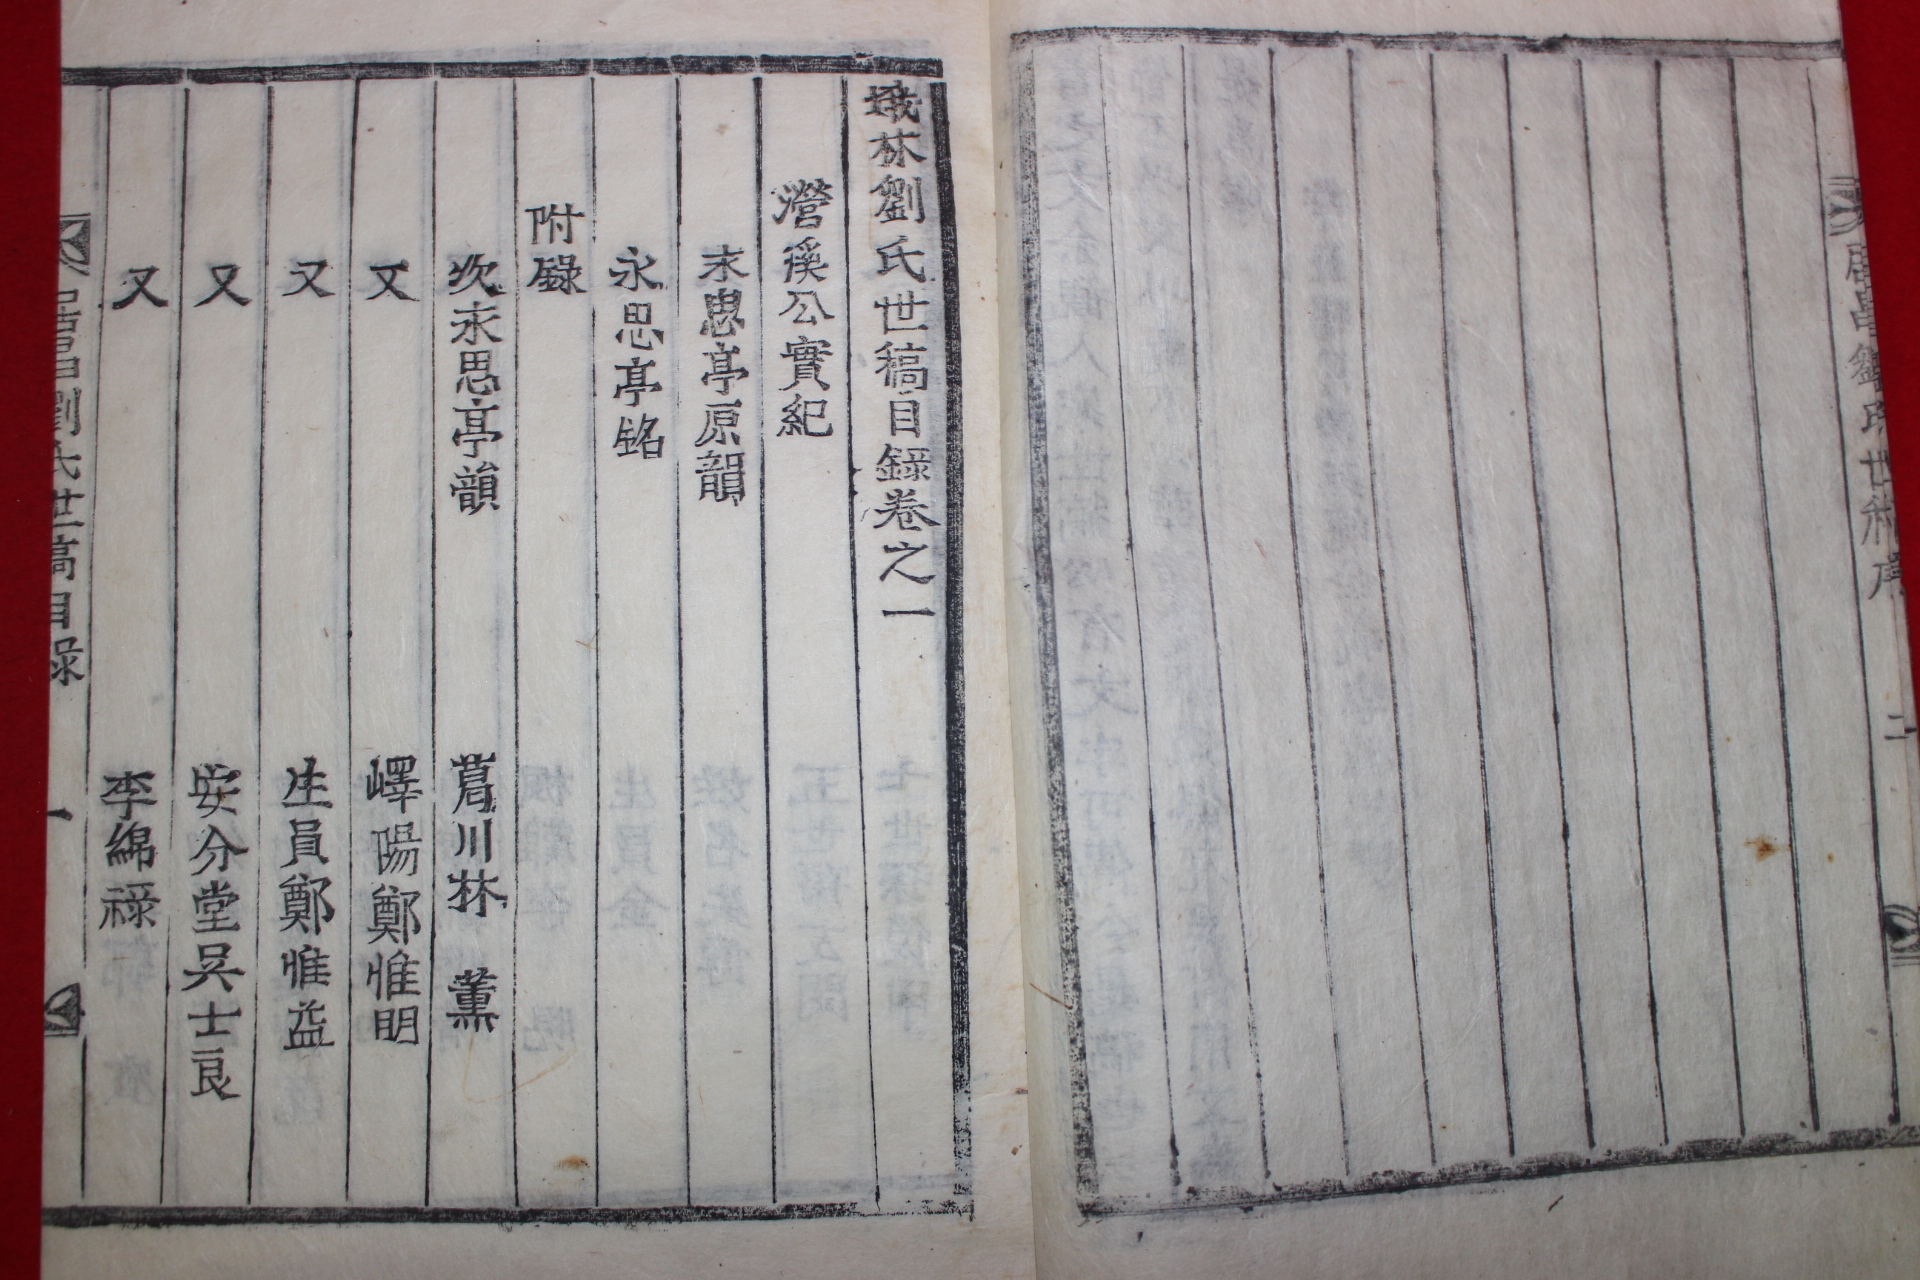 居昌劉氏世稿序 二
娥林劉氏世稿目錄卷之一
瀯溪公實紀
永思亭原韻
永思亭銘
附錄
次永思亭韻 葛川林 薰
又 嶧陽鄭惟明
又 生員鄭惟益
又 安分堂吳士良
又 李綿祿
居昌劉氏世稿目錄 一